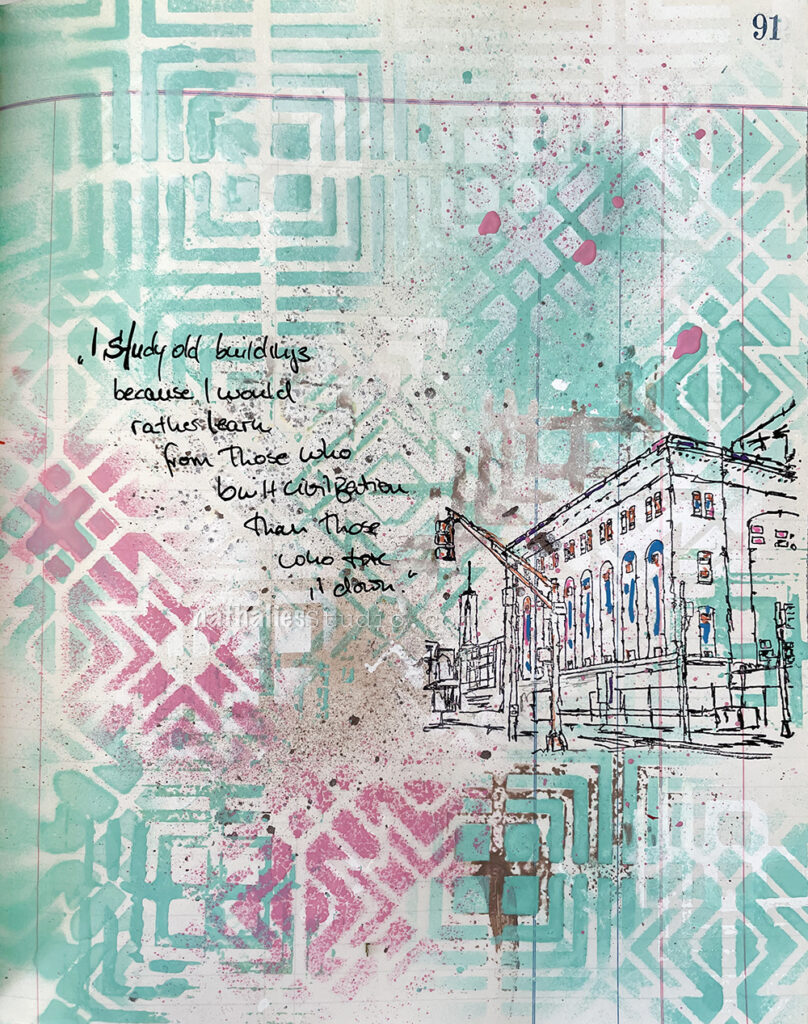 91
„I study old buildings
because I would
rather learn
from Those who
built civilization
than those
who tore
it down."
nathaliesstudio